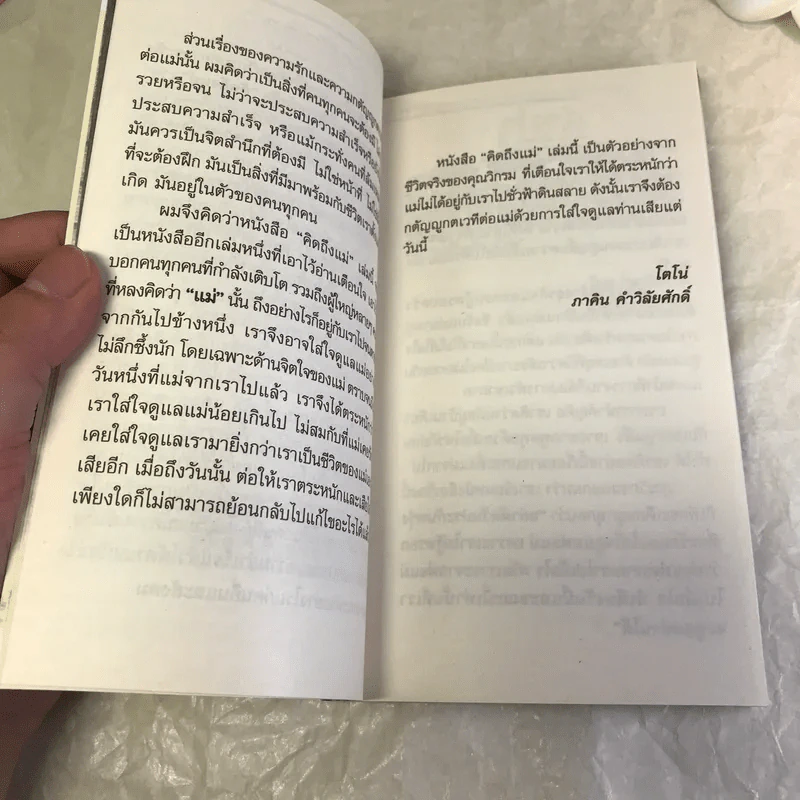 ส่วนเรื่องของความรักและความกตัญญู
ต่อแม่นั้น ผมคิดว่าเป็นสิ่งที่คนทุกคนจะต้องมี
รวยหรือจน ไม่ว่าจะประสบความสำเร็จหรือ
ประสบความสำเร็จ หรือแม้กระทั่งคนที่
มันควรเป็นจิตสำนึกที่ต้องมี ไม่ใช่หน้าที่
ที่จะต้องฝึก มันเป็นสิ่งที่มีมาพร้อมกับชีวิตเรา
เกิด มันอยู่ในตัวของคนทุกคน
ผมจึงคิดว่าหนังสือ “คิดถึงแม่” เล่มนี้
เป็นหนังสืออีกเล่มหนึ่งที่เอาไว้อ่านเตือนใจ
บอกคนทุกคนที่กำลังเติบโต รวมถึงผู้ใหญ่หลาย
ที่หลงคิดว่า “แม่” นั้น ถึงอย่างไรก็อยู่กับเราไป
จากกันไปข้างหนึ่ง เราจึงอาจใส่ใจดูแลแม่
ไม่ลึกซึ้งนัก โดยเฉพาะด้านจิตใจของแม่ ตราบจน
วันหนึ่งที่แม่จากเราไปแล้ว เราจึงได้ตระหนัก
เราใส่ใจดูแลแม่น้อยเกินไป ไม่สมกับที่แม่เคย
เคยใส่ใจดูแลเรามายิ่งกว่าเราเป็นชีวิตของแม่
เสียอีก เมื่อถึงวันนั้น ต่อให้เราตระหนักและ
เพียงใดก็ไม่สามารถย้อนกลับไปแก้ไขอะไรได้
หนังสือ “คิดถึงแม่” เล่มนี้ เป็นตัวอย่างจาก
ชีวิตจริงของคุณวิกรม ที่เตือนใจเราให้ได้ตระหนักว่า
แม่ไม่ได้อยู่กับเราไปชั่วฟ้าดินสลาย ดังนั้นเราจึงต้อง
กตัญญูกตเวทีต่อแม่ด้วยการใส่ใจดูแลท่านเสียแต่
วันนี้
โตโน่
ภาคิน คำวิลัยศักดิ์